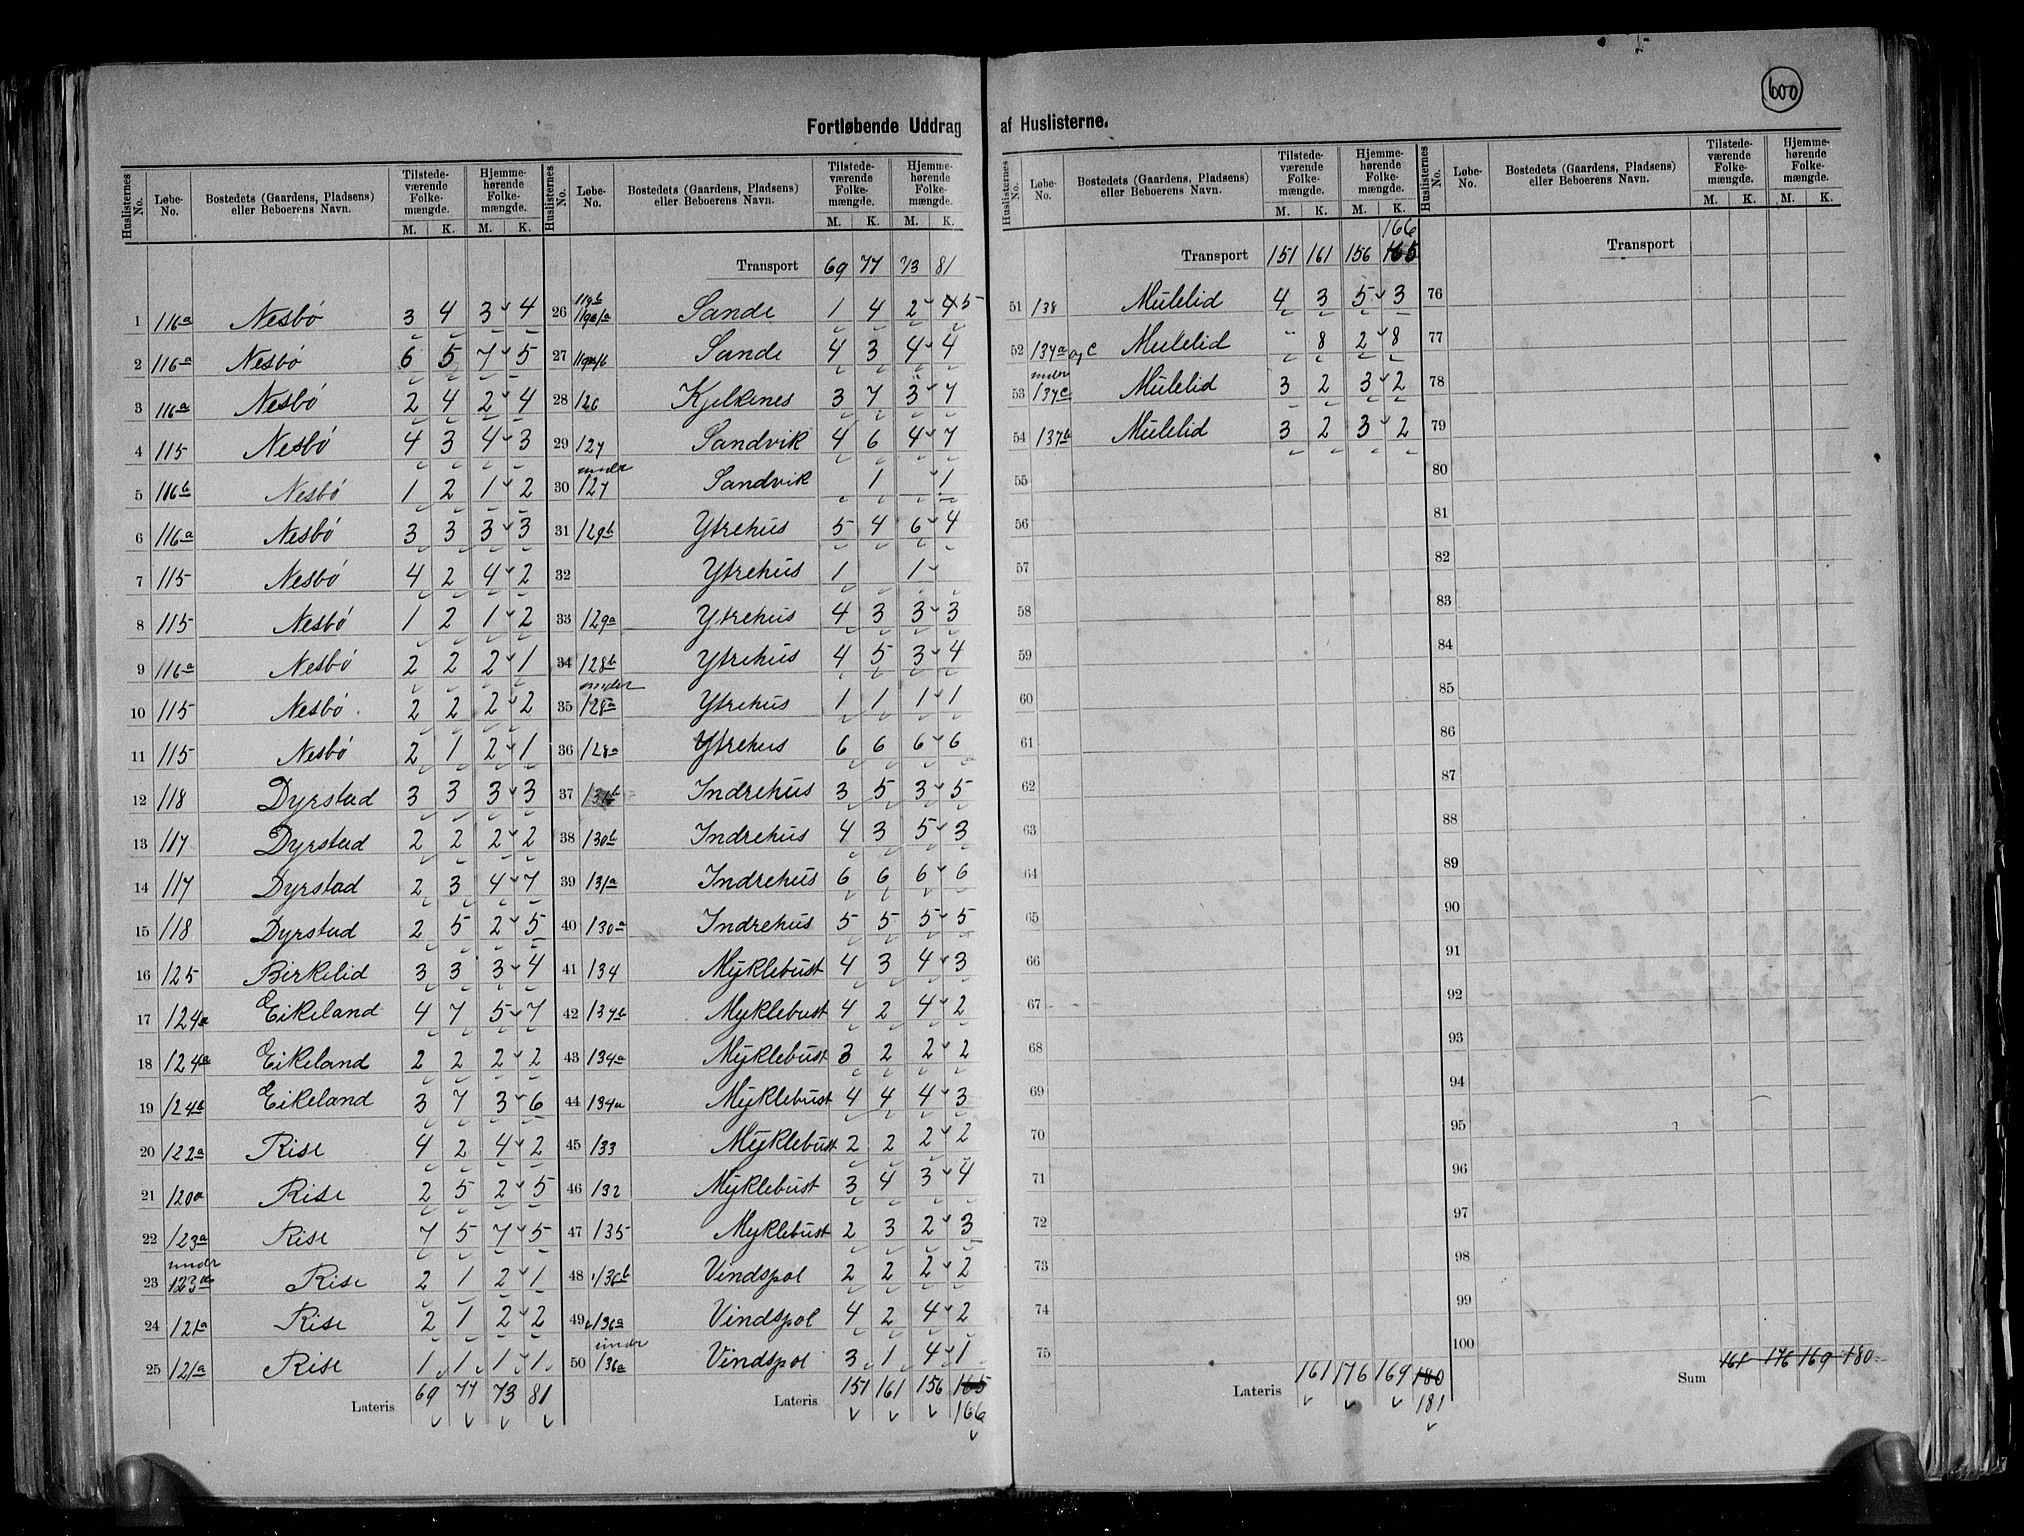 600
Fortløbende Uddrag af Huslisterne.
Huslisternes No. Løbe-No. Bostedets (Gaardens, Pladsens) eller Beboerens Navn. Tilstedeværende Folkemængde. M. K. Hjemmehørende Folkemængde. M. K.
1 116a Nesbö 3 4 3 4
2 116a Nesbö 6 5 7 5
3 116a Nesbö 2 4 2 4
4 115 Nesbö 4 3 4 3
5 116b Nesbö 1 2 1 2
6 116a Nesbö 3 3 3 3
7 115 Nesbö 4 2 4 2
8 115 Nesbö 1 2 1 2
9 116a Nesbö 2 2 2 1
10 115 Nesbö 2 2 2 2
11 115 Nesbö 2 1 2 1
12 118 Dyrstad 3 3 3 3
13 117 Dyrstad 2 2 2 2
14 117 Dyrstad 2 3 4 7
15 118 Dyrstad 2 5 2 5
16 125 Birkelid 3 3 3 4
17 124a Eikeland 4 7 5 7
18 124a Eikeland 2 2 2 2
19 124b Eikeland 3 7 3 6
20 122a Rise 4 2 4 2
21 120a Rise 2 5 2 5
22 123a Rise 7 5 7 5
23 under 123a Rise 2 1 2 1
24 121a Rise 2 1 2 2
25 121a Rise 1 1 1 1
Lateris 69 77 73 81
Huslisternes No. Løbe-No. Bostedets (Gaardens, Pladsens) eller Beboerens Navn. Tilstedeværende Folkemængde. M. K. Hjemmehørende Folkemængde. M. K.
Transport 69 77 73 81
26 119b 119a/a Sande 1 4 2 4 5
27 Sande 4 3 4 4
28 126 Kjelkenes 3 7 3 7
29 127 Sandvik 4 6 4 7
30 under 127 Sandvik 1 1
31 129b Ytrehus 5 4 6 4
32 Ytrehus 1 1
33 129a Ytrehus 4 3 3 3
34 128b Ytrehus 4 5 3 4
35 under 128a Ytrehus 1 1 1 1
36 128a Ytrehus 6 6 6 6
37 131b Indrehus 3 5 3 5
38 130b Indrehus 4 3 5 3
39 131a Indrehus 6 6 6 6
40 130a Indrehus 5 5 5 5
41 134 Myklebust 4 3 4 3
42 134b Myklebust 4 2 4 2
43 134a Myklebust 3 2 2 2
44 134a Myklebust 4 4 4 3
45 133 Myklebust 2 2 2 2
46 132 Myklebust 3 4 3 4
47 135 Myklebust 2 3 2 3
48 136b Vindspol 2 2 2 2
49 136a Vindspol 4 2 4 2
50 under 136a Vindspol 3 1 4 1
Lateris 151 161 156 165
166
Huslisternes No. Løbe-No. Bostedets (Gaardens, Pladsens) eller Beboerens Navn. Tilstedeværende Folkemængde. M. K. Hjemmehørende Folkemængde. M. K.
166
Transport 151 161 156 165
51 138 Mulelid 4 3 5 3
52 137a og c Mulelid " 8 2 8
53 under 137c Mulelid 3 2 3 2
54 137b Mulelid 3 2 3 2
55
56
57
58
59
60
61
62
63
64
65
66
67
68
69
70
71
72
73
74
75
Lateris 161 176 169 180
181
Huslisternes No. Løbe-No. Bostedets (Gaardens, Pladsens) eller Beboerens Navn. Tilstedeværende Folkemængde. M. K. Hjemmehørende Folkemængde. M. K.
Transport
76
77
78
79
80
81
82
83
84
85
86
87
88
89
90
91
92
93
94
95
96
97
98
99
100
Sum 161 176 169 180